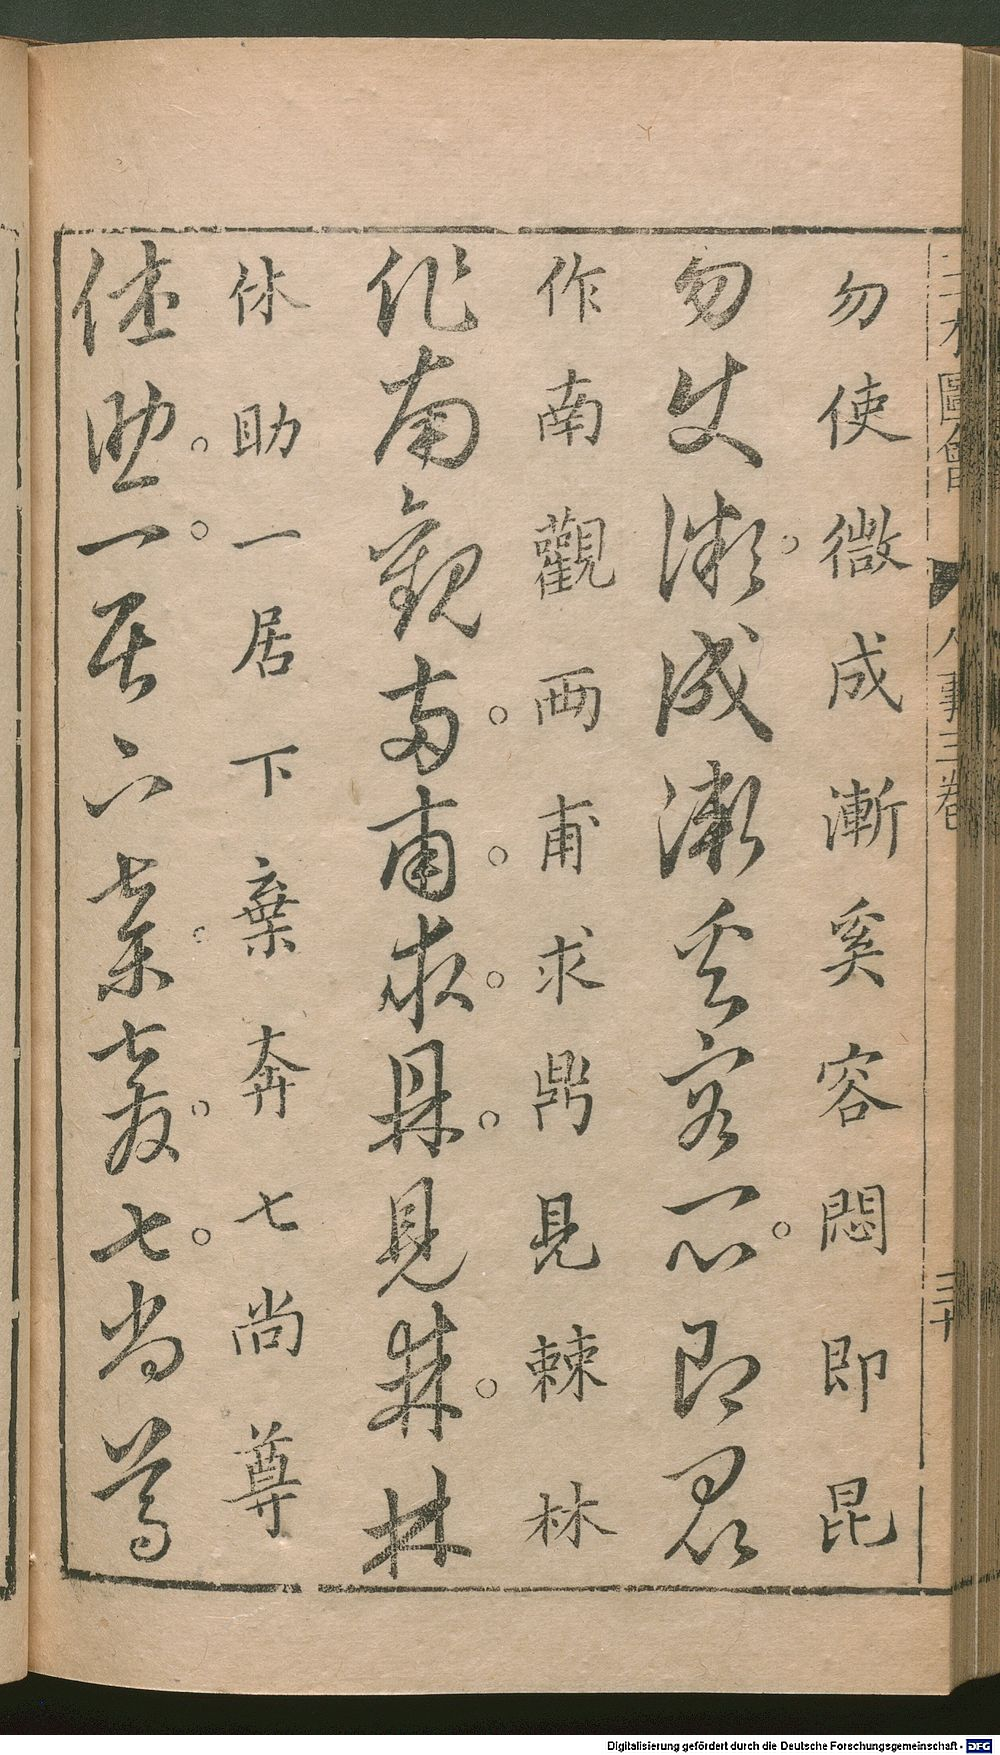 三才圖會 人事三卷 三十
勿使微成漸奚容悶即昆
勿使微成漸奚容悶即昆
作南觀兩甫求鼎見棘林
作南觀兩甫求鼎見棘林
休助一居下棄奔七尚尊
休助一居下棄奔七尚尊
Digitalisierung gefördert durch die Deutsche Forschungsgemeinschaft - DFG